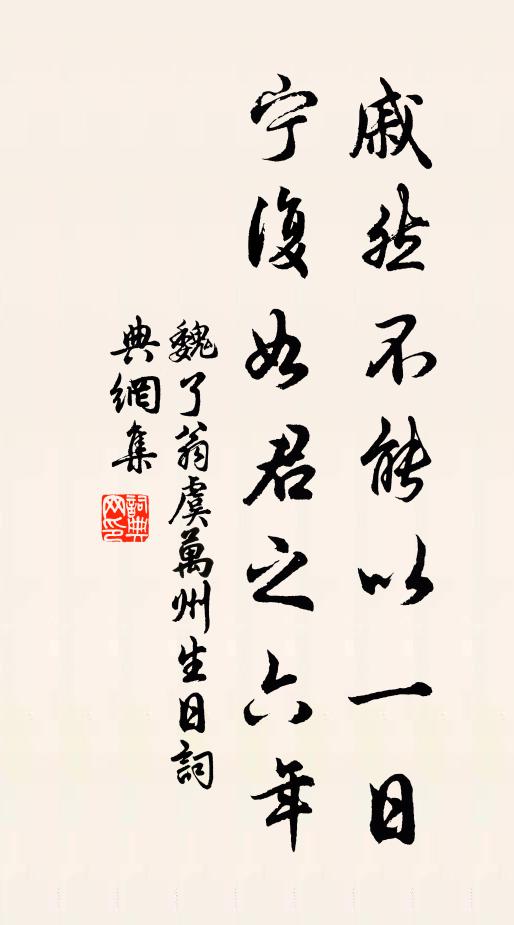 戚然不能以一日
宁復如君之六年
魏了翁虞萬州生日詞
典網集
詞典网印